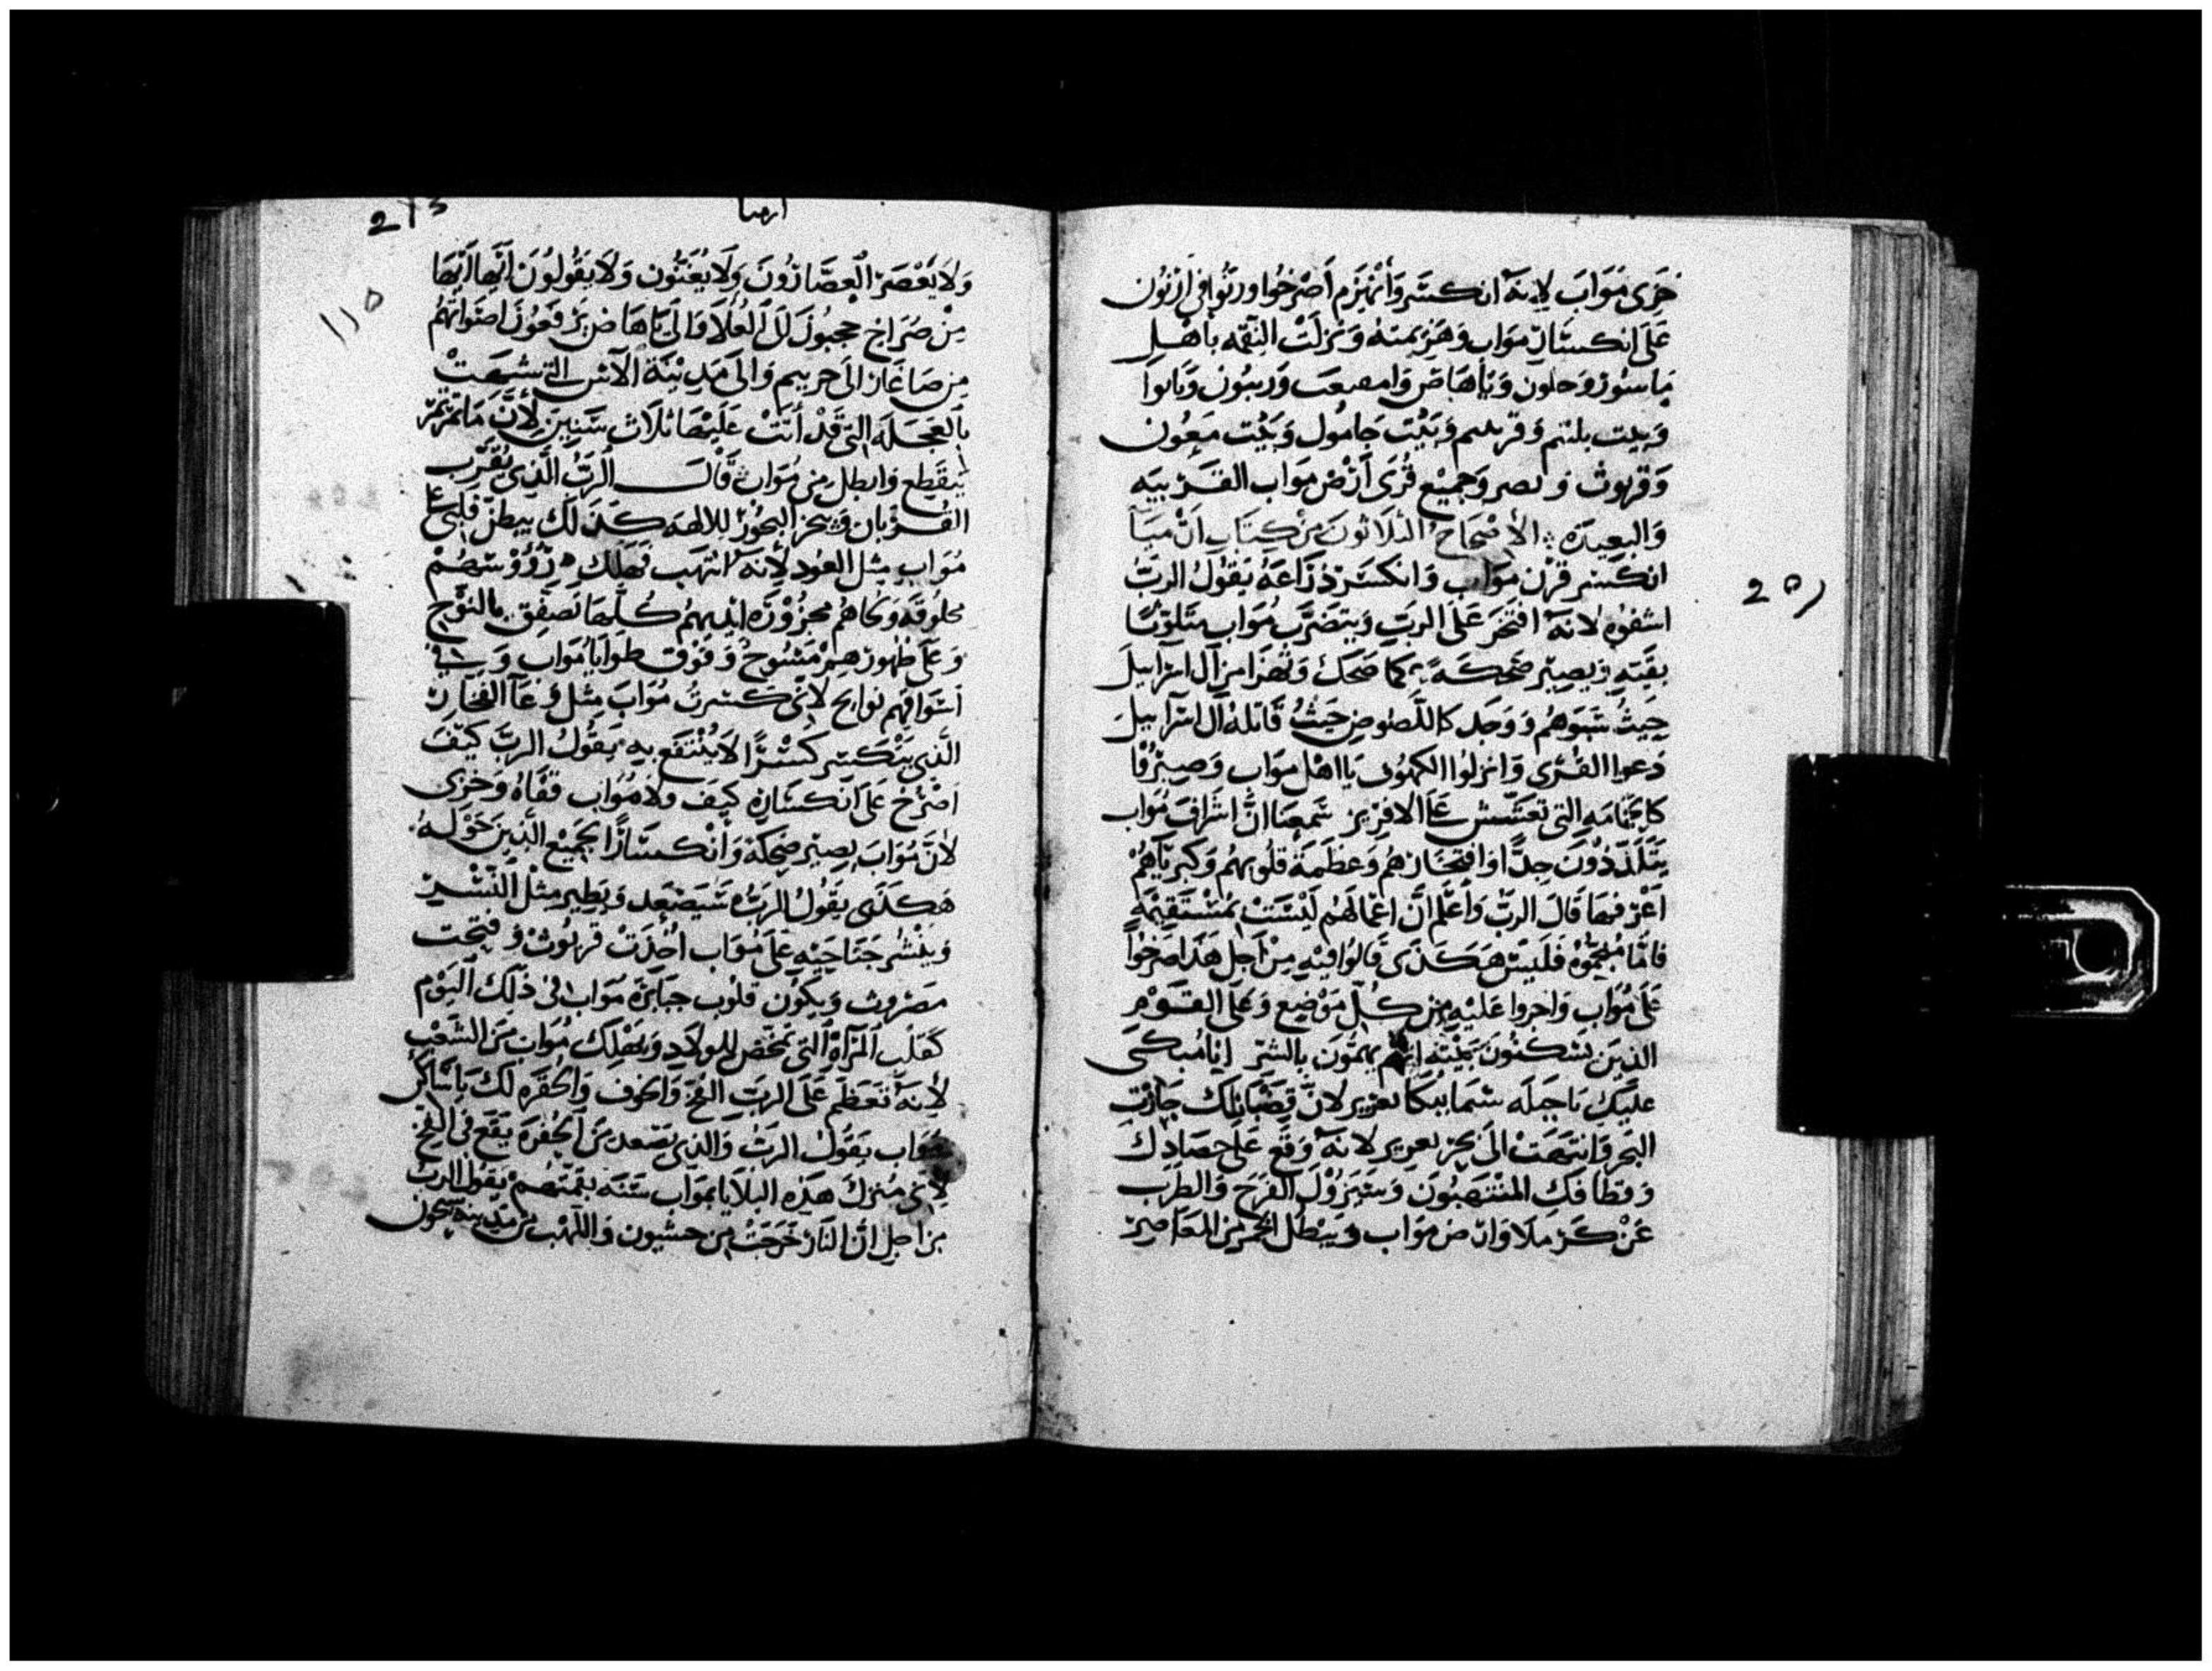 خزى مواب لانه انكسر وانهزم اصرخوا ورنوا في ارنون
على انكسار مواب وهزيمته ونزلت النقمه باهل
ماسور وحلون وياهاص وامفعت وريبون ونابوا
وبيت بلتم وقرتيم وبيت جامول وبيت معون
وقريوث وبصر وجميع قرى ارض مواب القريبيه
والبعيده الاصحاح الثلاثون من كتاب ارميا
انكسر قرن مواب وانكسر ذراعه يقول الرب
اشقوه لانه افتخر على الرب ويتضرب مواب متلوثا
بقيته ويصير ضحكه كما ضحك وتهزا من آل اسراييل
حيث سبوهم ووجد كاللصوص حيث قاتله آل اسراييل
دعوا القرى وانزلوا الكهوف يا اهل مواب وصيروا
كالحمامه التي تعشش على الافريز سمعنا ان اشراف مواب
يتلذذون جدا وافتخارهم وعظمة قلوبهم وكبرياهم
اعرفها قال الرب واعلم ان اعمالهم ليست بمستقيمه
فاما منجموه فليس هكذى قالوا فيه من اجل هذا اصرخوا
على مواب واحروا عليه من كل موضع وعلى القوم
الذين يسكنون بيته انهم يهمون بالشر انا مبكى
عليك يا جبلة سما ببكا لعزير لان قضبانك جازت
البحر وانتهت الى بحر لعزير لانه وقع على حصادك
وقطافك المنتهبون وسيزول الفرح والطرب
عن كرملا وارض مواب ويبطل الخمر من المعاصر
20
ارميا
ولا يعصر العصارون ولا يغنون ولا يقولون ايها ايها
من صراخ حجبون لل العلا والى ياهاص يرفعون اصواتهم
من صاغار الى حريم والى مدينة الاس التي شبهت
بالعجله التي قد أتت عليها ثلاث سنين لأن ما تمرتمر
ينقطع وابطل من مواب قال الرب الذي يقرب
القربان ويبخر البخور للالهه كذلك يبطر قلبي على
مواب مثل العود لانه انتهب فهلك رؤوسهم
محلوقه ولحاهم مجزوزه ايديهم كلها تصفق بالنوح
وعلى ظهورهم مسوح وفوق طوايا مواب وفي
اسواقهم نوايح لاني كسرت مواب مثل وعا الفخار
الذي ينكسر كسرا لا ينتفع به يقول الرب كيف
اصرخ على انكساره كيف ولا مواب قفاه وخزى
لان مواب يصير ضحكة وانكسارا لجميع الذين حوله
هكذى يقول الرب سيصعد ويطير مثل النسر
وينشر جناحيه على مواب اخذت قريوث وفتحت
مصروث ويكون قلوب جبابرة مواب في ذلك اليوم
كقلب المراة التي تمخض للولاد ويهلك مواب من الشعب
لانه تعظم على الرب الفخ والخوف والحفره لك يا ساكن
مواب يقول الرب والذي يصعد من الحفره يقع في الفخ
لاني منزل هذه البلايا بمواب سنة بقمتهم يقول الرب
من اجل ان النار خرجت من حشبون واللهب من مدينة سحون